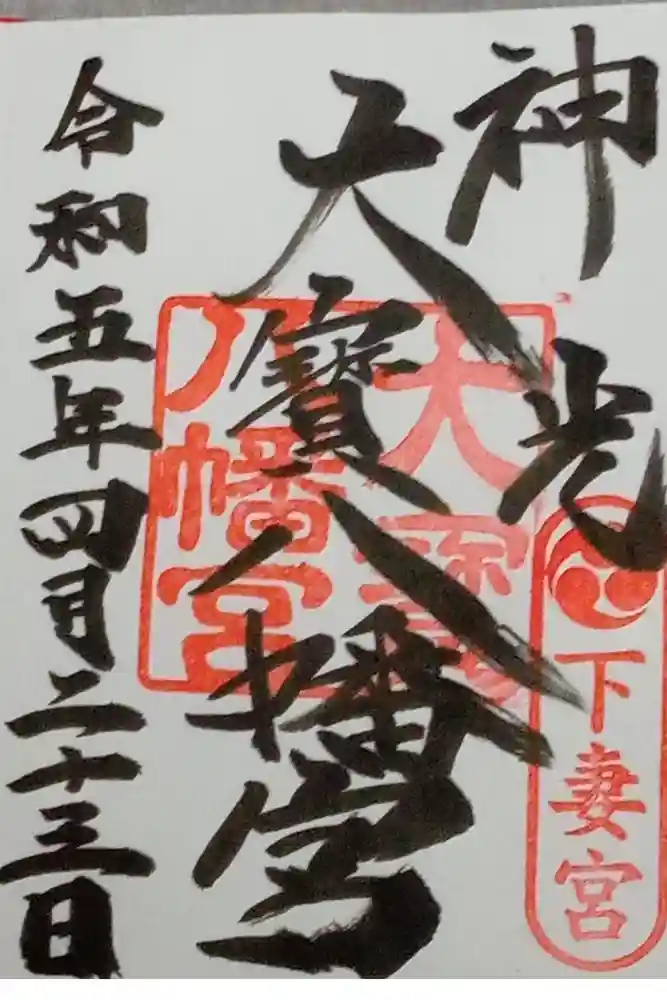 神光
大寶八幡宮
令和五年四月二十三日
大寶
八幡宮
下妻宮